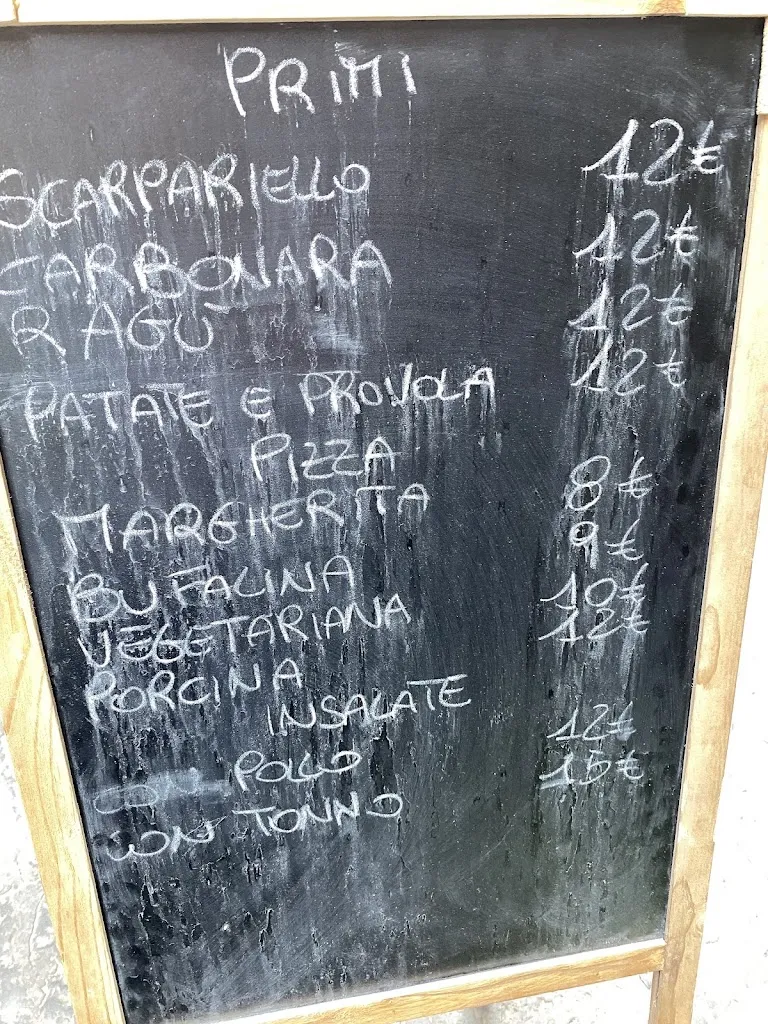 PRIMI
SCARPARIELLO 12€
CARBONARA 12€
RAGÙ 12€
PATATE E PROVOLA 12€
PIZZA
MARGHERITA 8€
BUFALINA 9€
VEGETARIANA 10€
PORCINA 12€
INSALATE
CON POLLO 12€
CON TONNO 15€